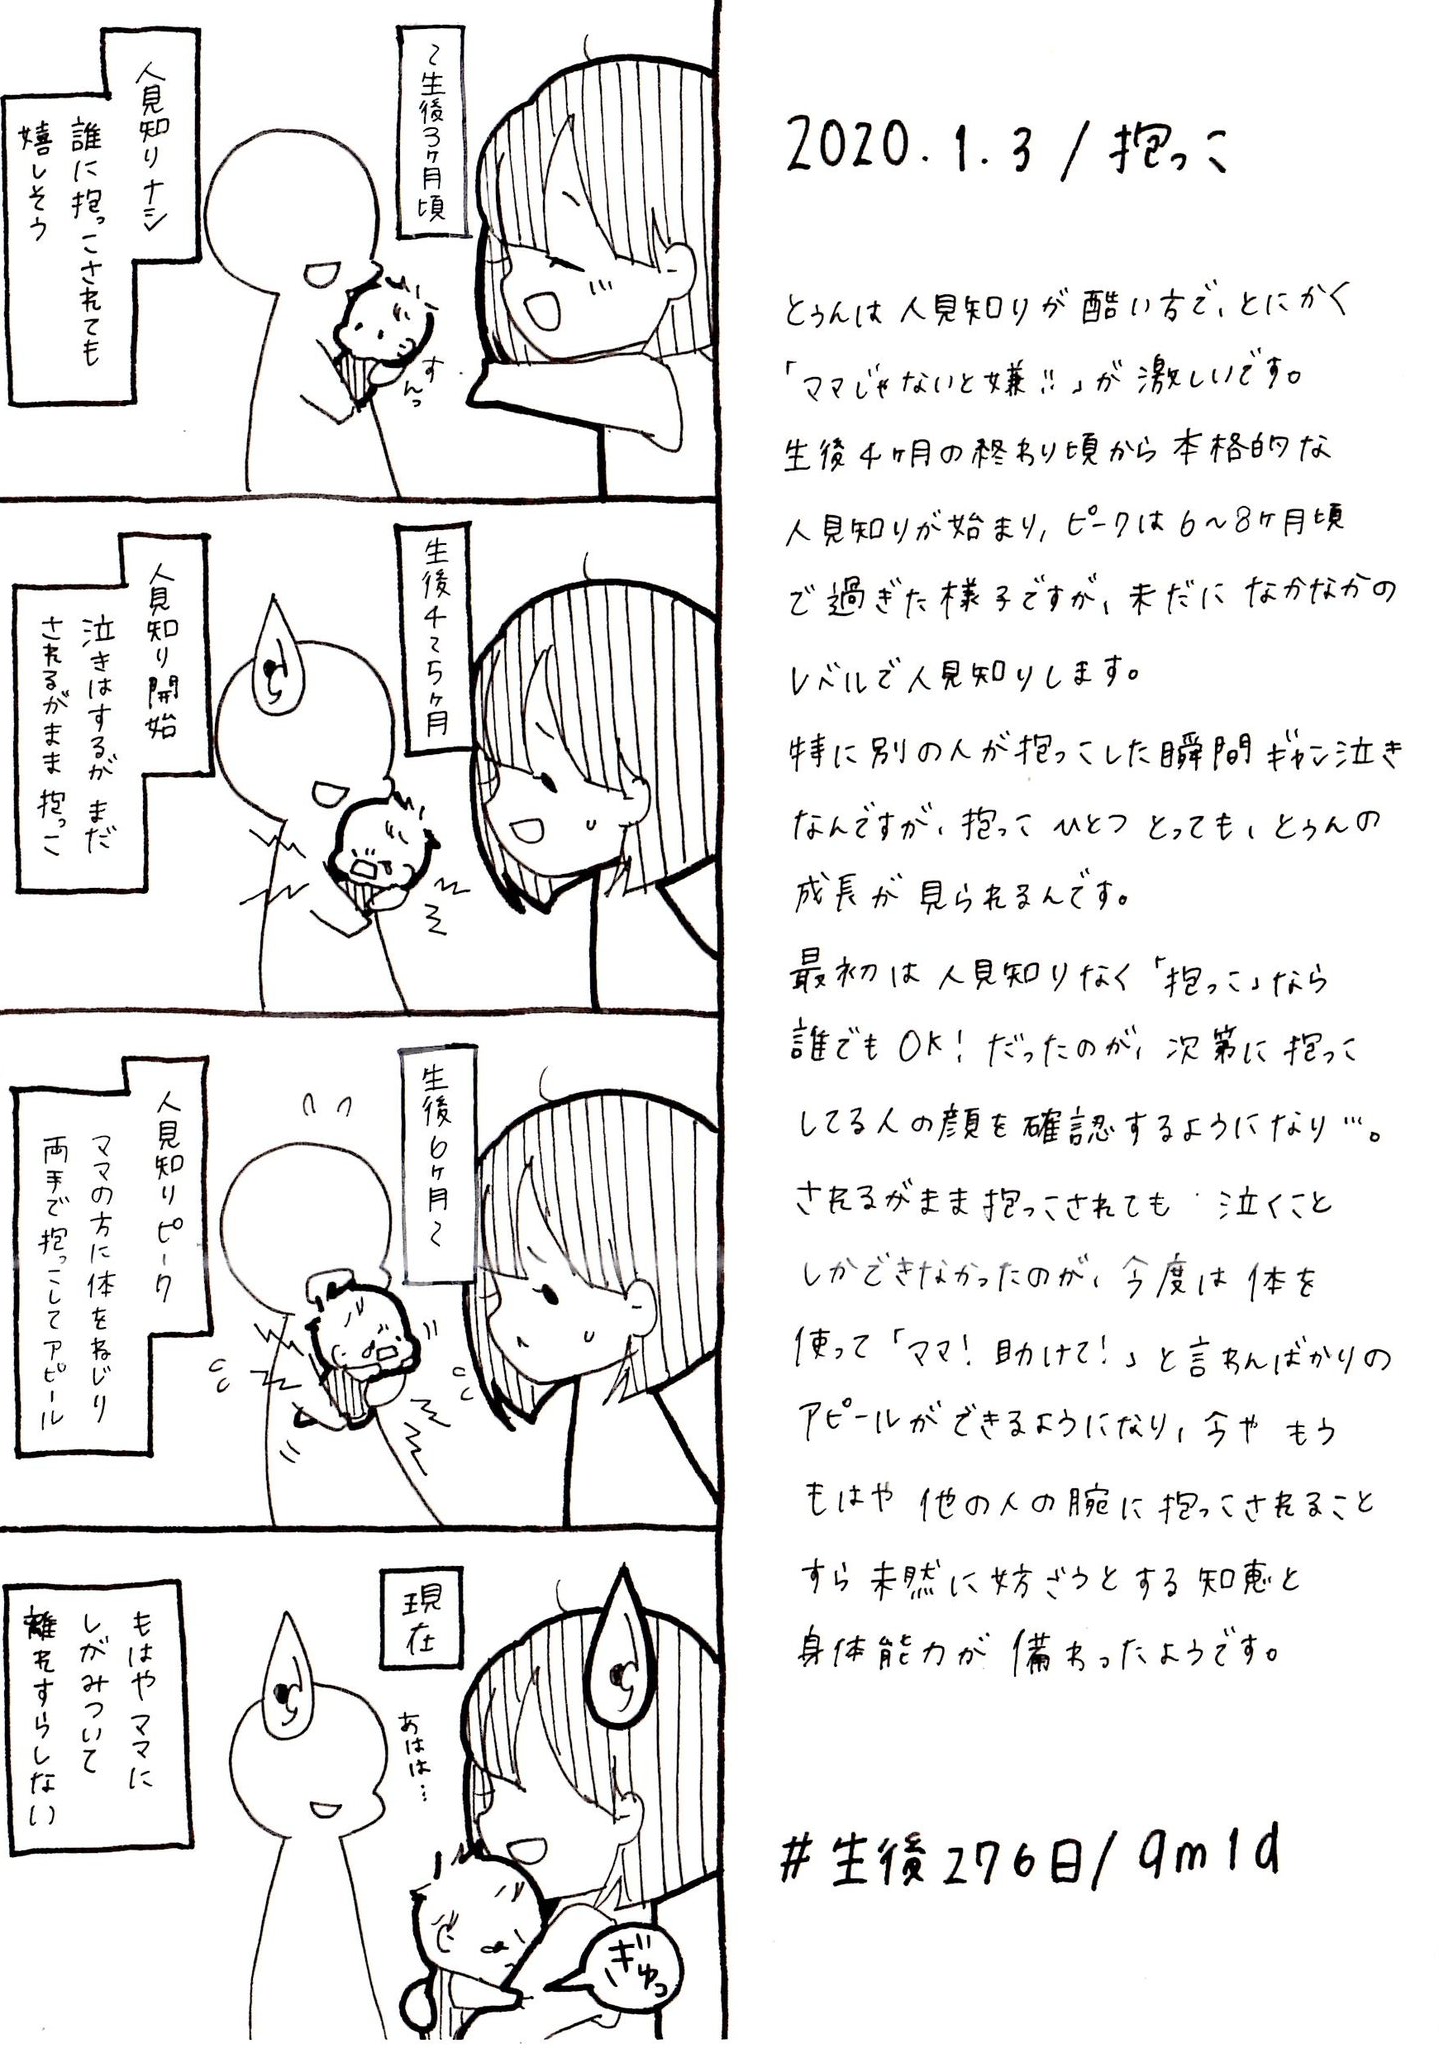 2020.1.3/抱っこ
とぅんは人見知りが酷い方で、とにかく
「ママじゃないと嫌!!」が激しいです。
生後4ヶ月の終わり頃から本格的な
人見知りが始まり、ピークは6〜8ヶ月頃
で過ぎた様子ですが、未だになかなかの
レベルで人見知りします。
特に別の人が抱っこした瞬間ギャン泣き
なんですが、抱っこひとつとっても、とぅんの
成長が見られるんです。
最初は人見知りなく「抱っこ」なら
誰でもOK!だったのが、次第に抱っこ
してる人の顔を確認するようになり…。
されるがまま抱っこされても泣くこと
しかできなかったのが、今度は体を
使って「ママ!助けて!」と言わんばかりの
アピールができるようになり、今やもう
もはや他の人の腕に抱っこされること
すら未然に妨ごうとする知恵と
身体能力が備わったようです。
#生後276日/9m1d
〜生後3ヶ月頃
人見知りナシ
誰に抱っこされても
嬉しそう
すんっ
生後4〜5ヶ月
人見知り開始
泣きはするがまだ
されるがまま抱っこ
生後6ヶ月〜
人見知りピーク
ママの方に体をねじり
両手で抱っこしてアピール
現在
あはは…
もはやママに
しがみついて
離れすらしない
ぎゅっ